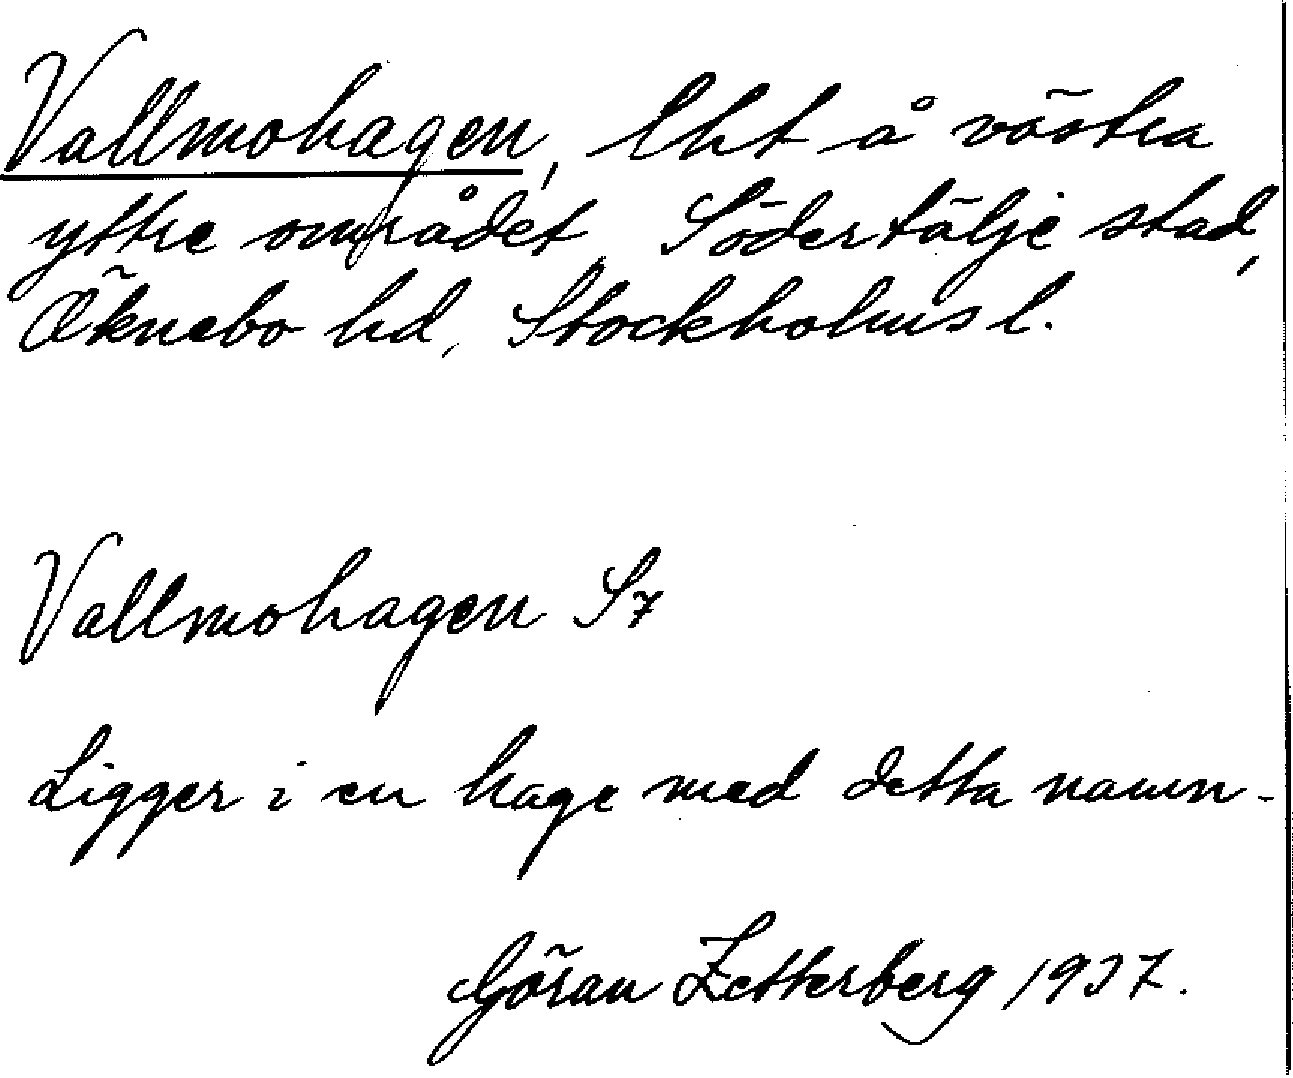 Vallmohagen, lht å västra
yttre området, Södertälje stad,
Öknebo hd, Stockholms l.
Vallmohagen S7
Ligger i en hage med detta namn.
Göran Zetterberg 1937.